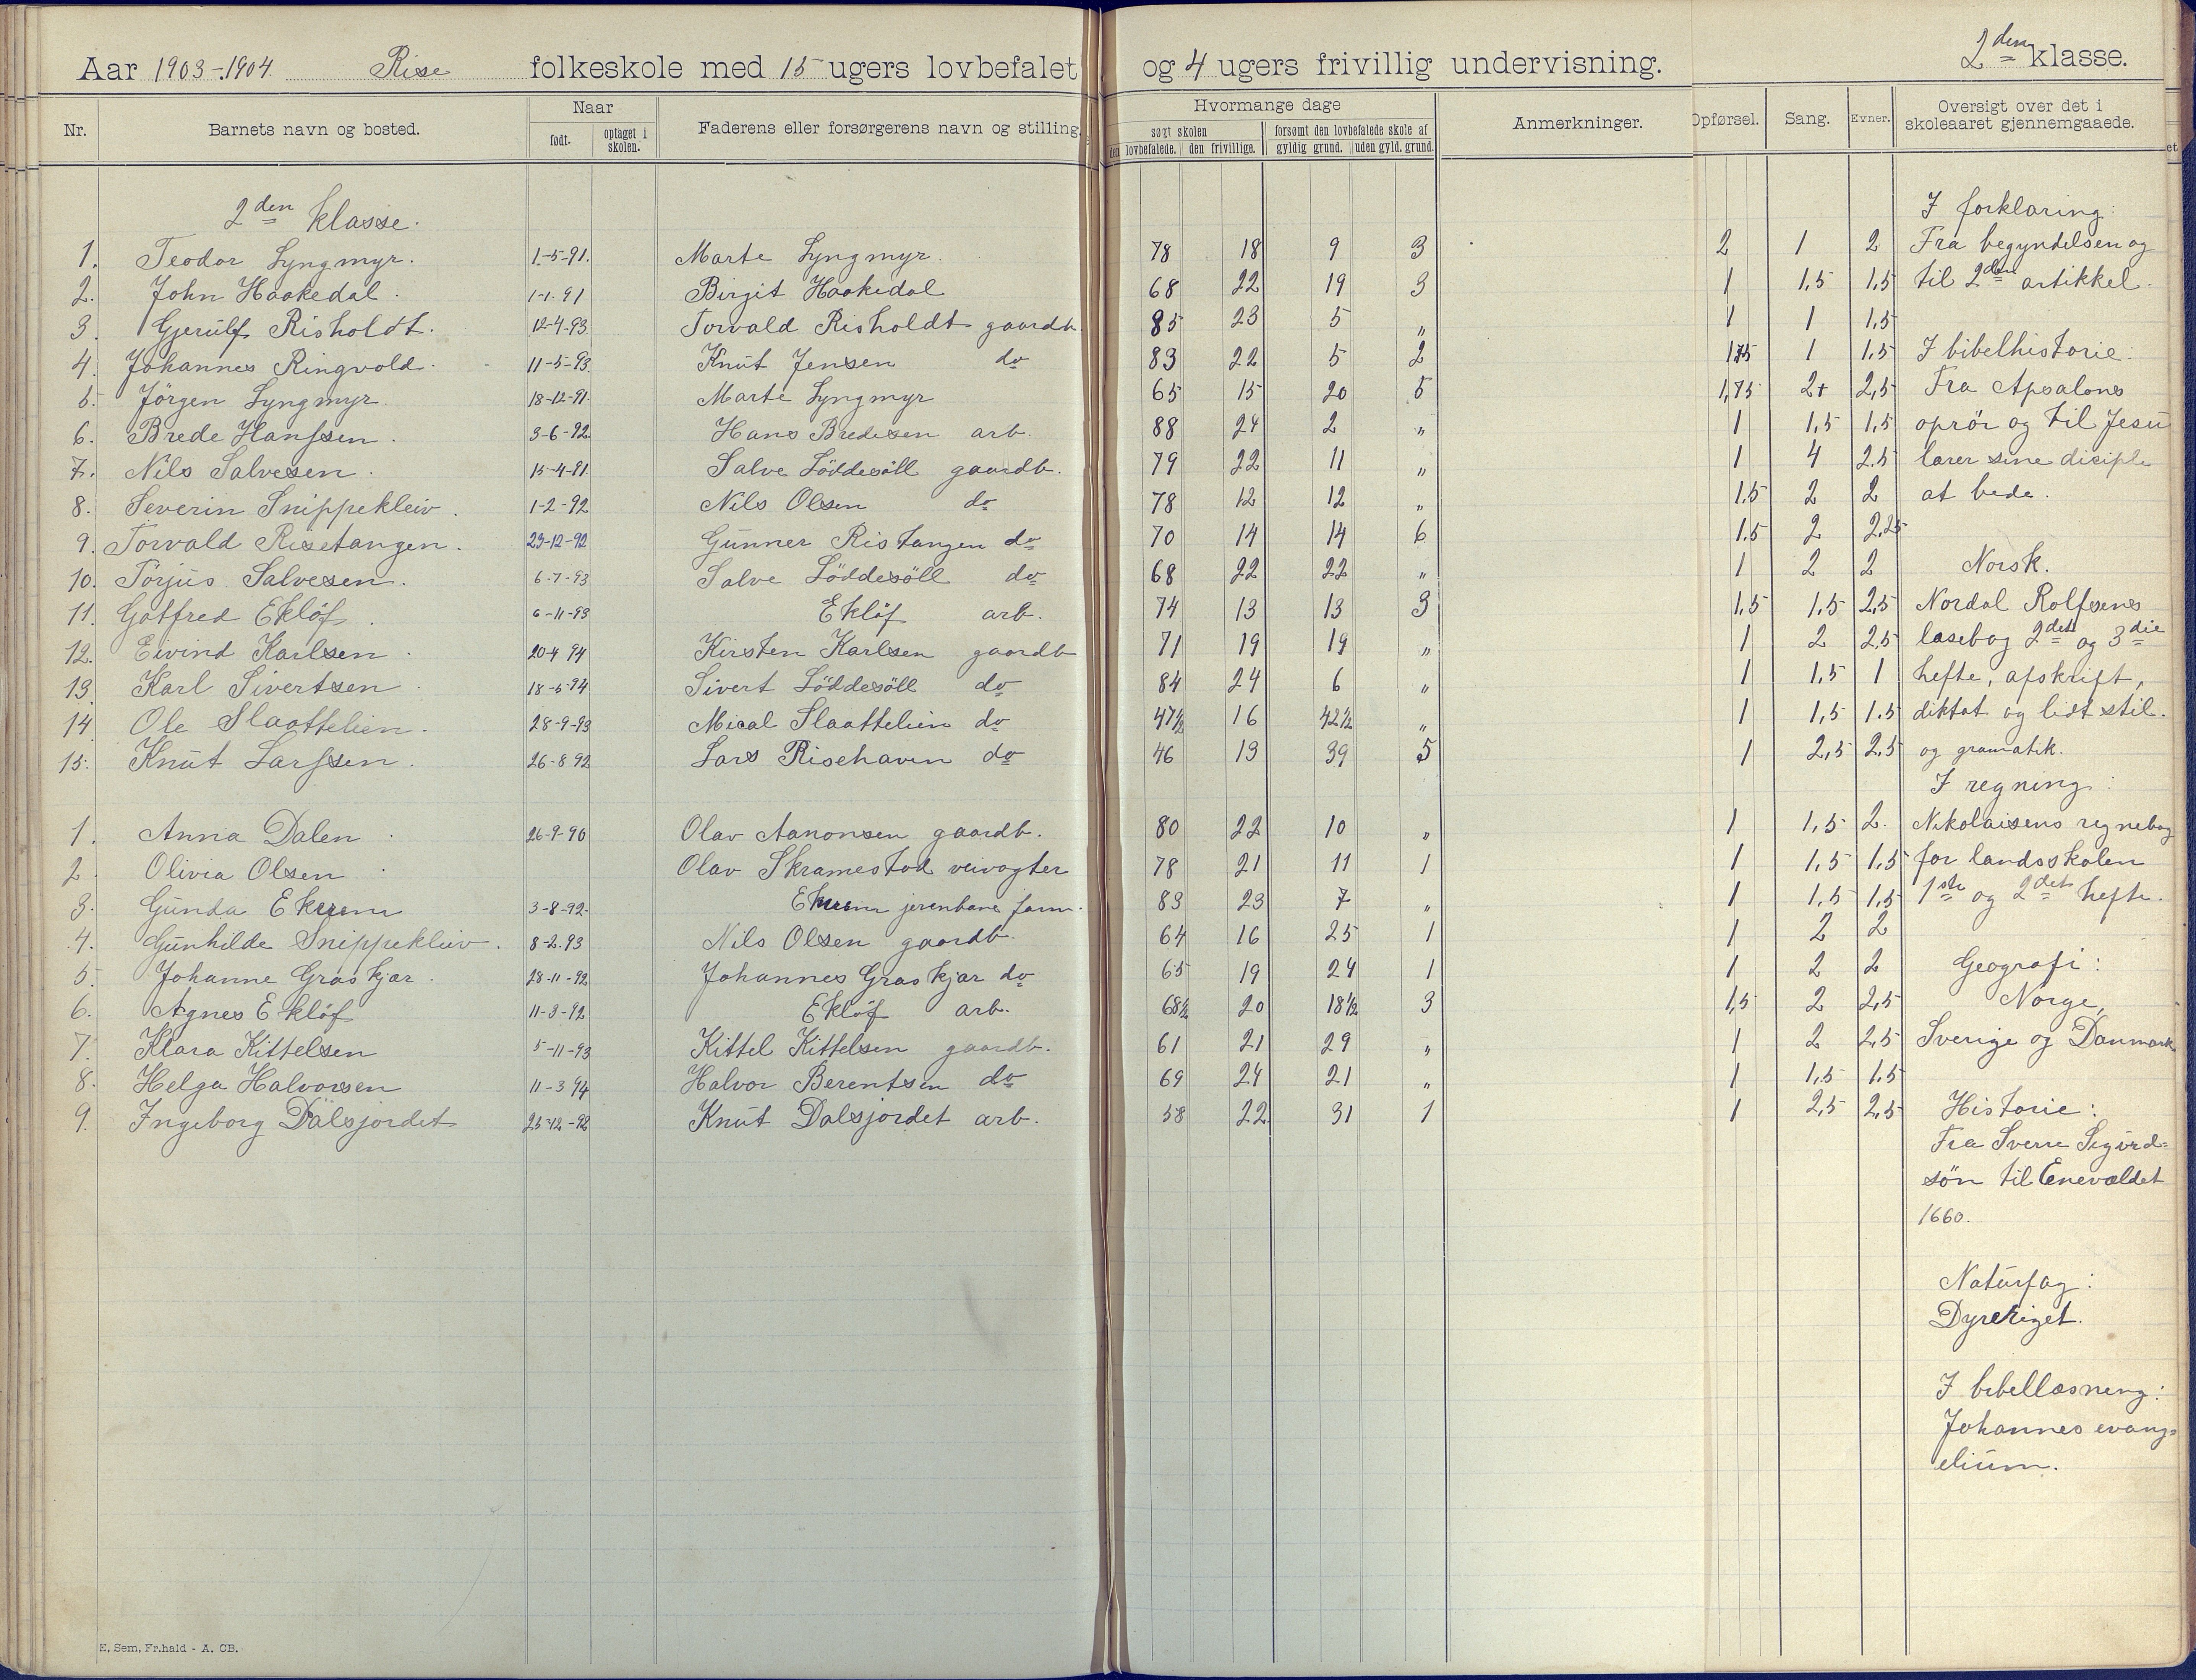 Aar 1903-1904 Rise folkeskole med 15 ugers lovbefalet og 4 ugers frivillig undervisning. 2den klasse.
Nr. Barnets navn og bosted. Naar født. optaget i skolen. Faderens eller forsørgerens navn og stilling. Hvormange dage søgt skolen den lovbefalede. den frivillige. forsømt den lovbefalede skole af gyldig grund. uden gyld. grund. Anmerkninger. Opførsel. Sang. Evner. Oversigt over det i skoleaaret gjennemgaaede.
2den klasse. I forklaring:
1. Teodor Lyngmyr. 1-5-91. Marte Lyngmyr. 78 18 9 3 2 1 2 Fra begyndelsen og
2. John Haakedal. 1-1-91 Birgit Haakedal 68 22 19 3 1 1,5 1,5 til 2den artikkel.
3. Gjerulf Risholdt. 12-4-93 Torvald Risholdt gaardb. 85 23 5 " 1 1 1,5
4. Johannes Ringvold. 11-5-93. Knut Jensen do 83 22 5 2 1,75 1 1,5 I bibelhistorie:
5. Jörgen Lyngmyr. 18-12-91. Marte Lyngmyr 65 15 20 5 1,75 2+ 2,5 Fra Apsalons
6. Brede Hanssen. 3-6-92 Hans Bredesen arb. 88 24 2 " 1 1,5 1,5 oprör og til Jesu
7. Nils Salvesen. 15-4-91 Salve Löddesöll gaardb. 79 22 11 " 1 4 2,5 lærer sine disciple
8. Severin Snippekleiv. 1-2-92 Nils Olsen do 78 12 12 " 1.5 2 2 at bede.
9. Torvald Risetangen. 23-12-92 Gunner Ristangen do 70 14 14 6 1.5 2 2,25
10. Torjus Salvesen. 6-7-93 Salve Löddesöll do 68 22 22 " 1 2 2 Norsk.
11. Gotfred Eklöf. 6-11-93 Eklöf arb. 74 13 13 3 1,5 1,5 2,5 Nordal Rolfsens
12. Eivind Karlsen. 20-4 94 Kirsten Karlsen gaardb 71 19 19 " 1 2 2,5 læsebog 2det og 3die
13. Karl Sivertsen. 18-5-94 Sivert Löddesöll do 84 24 6 " 1 1,5 1 hefte, afskrift,
14. Ole Slaattelien. 28-9-93 Mical Slaattelien do 47½ 16 42½ " 1 1,5 1.5 diktat og lidt stil.
15. Knut Larssen. 26-8 92 Lars Risehaven do 46 13 39 5 1 2,5 2,5 og gramatik.
I regning:
1. Anna Dalen. 26-9-90 Olav Aanonsen gaardb. 80 22 10 " 1 1,5 2. Nikolaisens regnebog
2. Olivia Olsen. Olav Skramestad veivogter 78 21 11 1 1 1,5 1,5 for landsskolen
3. Gunda 3-8-92. jerenbane form. 83 23 7 " 1 1,5 1,5 1ste og 2det hefte.
4. Gunhilde Snippekleiv. 8-2-93 Nils Olsen gaardb. 64 16 25 1 1 2 2
5. Johanne Graskjær. 28-11-92 Johannes Graskjær do 65 19 24 1 1 2 2 Geografi:
6. Agnes Eklöf 11-3-92 Eklöf arb. 68½ 20 18½ 3 1,5 2 2,5 Norge,
7. Klara Kittelsen 5-11-93 Kittel Kittelsen gaardb. 61 21 29 " 1 2 2,5 Sverige og Danmark
8. Helga Halvorsen 11-3 94 Halvor Berentsen do 69 24 21 " 1 1,5 1.5
9. Ingeborg Dalsjordet 25-12-92 Knut Dalsjordet arb. 58 22 31 1 1 2,5 2,5 Historie:
Fra Sverre Sigurd-
sön til Enevældet
1660.
Naturfag:
Dyreriget.
I bibellæsning:
Johannes evang-
elium.
E. Sem, Fr.hald - A. CB.